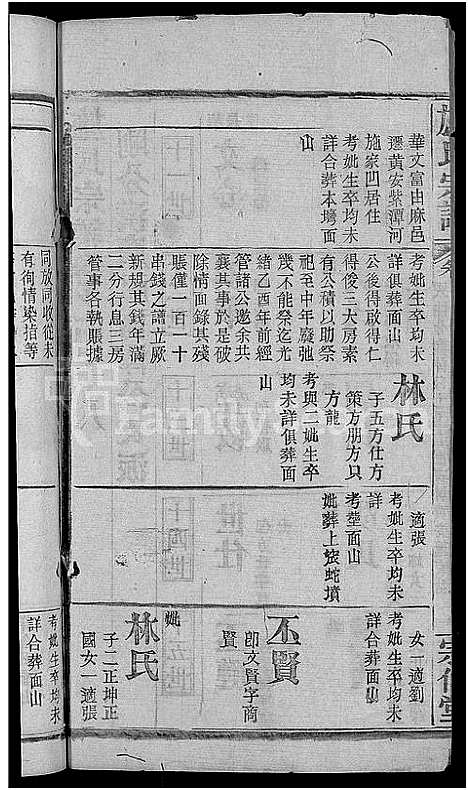 施氏宗譜
宗信堂
華文富由麻邑
遷黃安紫潭河
施家凹居住
考妣生卒均未
詳合葬本塆面
山
考妣生卒均未
詳俱葬面山
公後得啟得仁
得俊三大房素
有公積以助祭
祀至中年廢弛
幾不能祭迄光
緒乙酉年前經
管諸公邀余共
襄其事於是破
除情面錄其殘
賬僅一百一十
串錢之譜立厰
新規其錢年滿
二分行息三房
管事各執賬據
林氏
子五方仕方
策方朋方只
方龍
考與二妣生卒
均未詳俱葬面
山
適張
考妣生卒均未
詳
考塟面山
妣葬上旋蛇墳
山
女一適劉
考妣生卒均未
詳合葬面山
丕賢
卽文賢字商
賢
妣
林氏
子二正坤正
國女一適張
同放同收從未
有徇情染指等
考妣生卒均未
詳合葬面山
FamilySearch